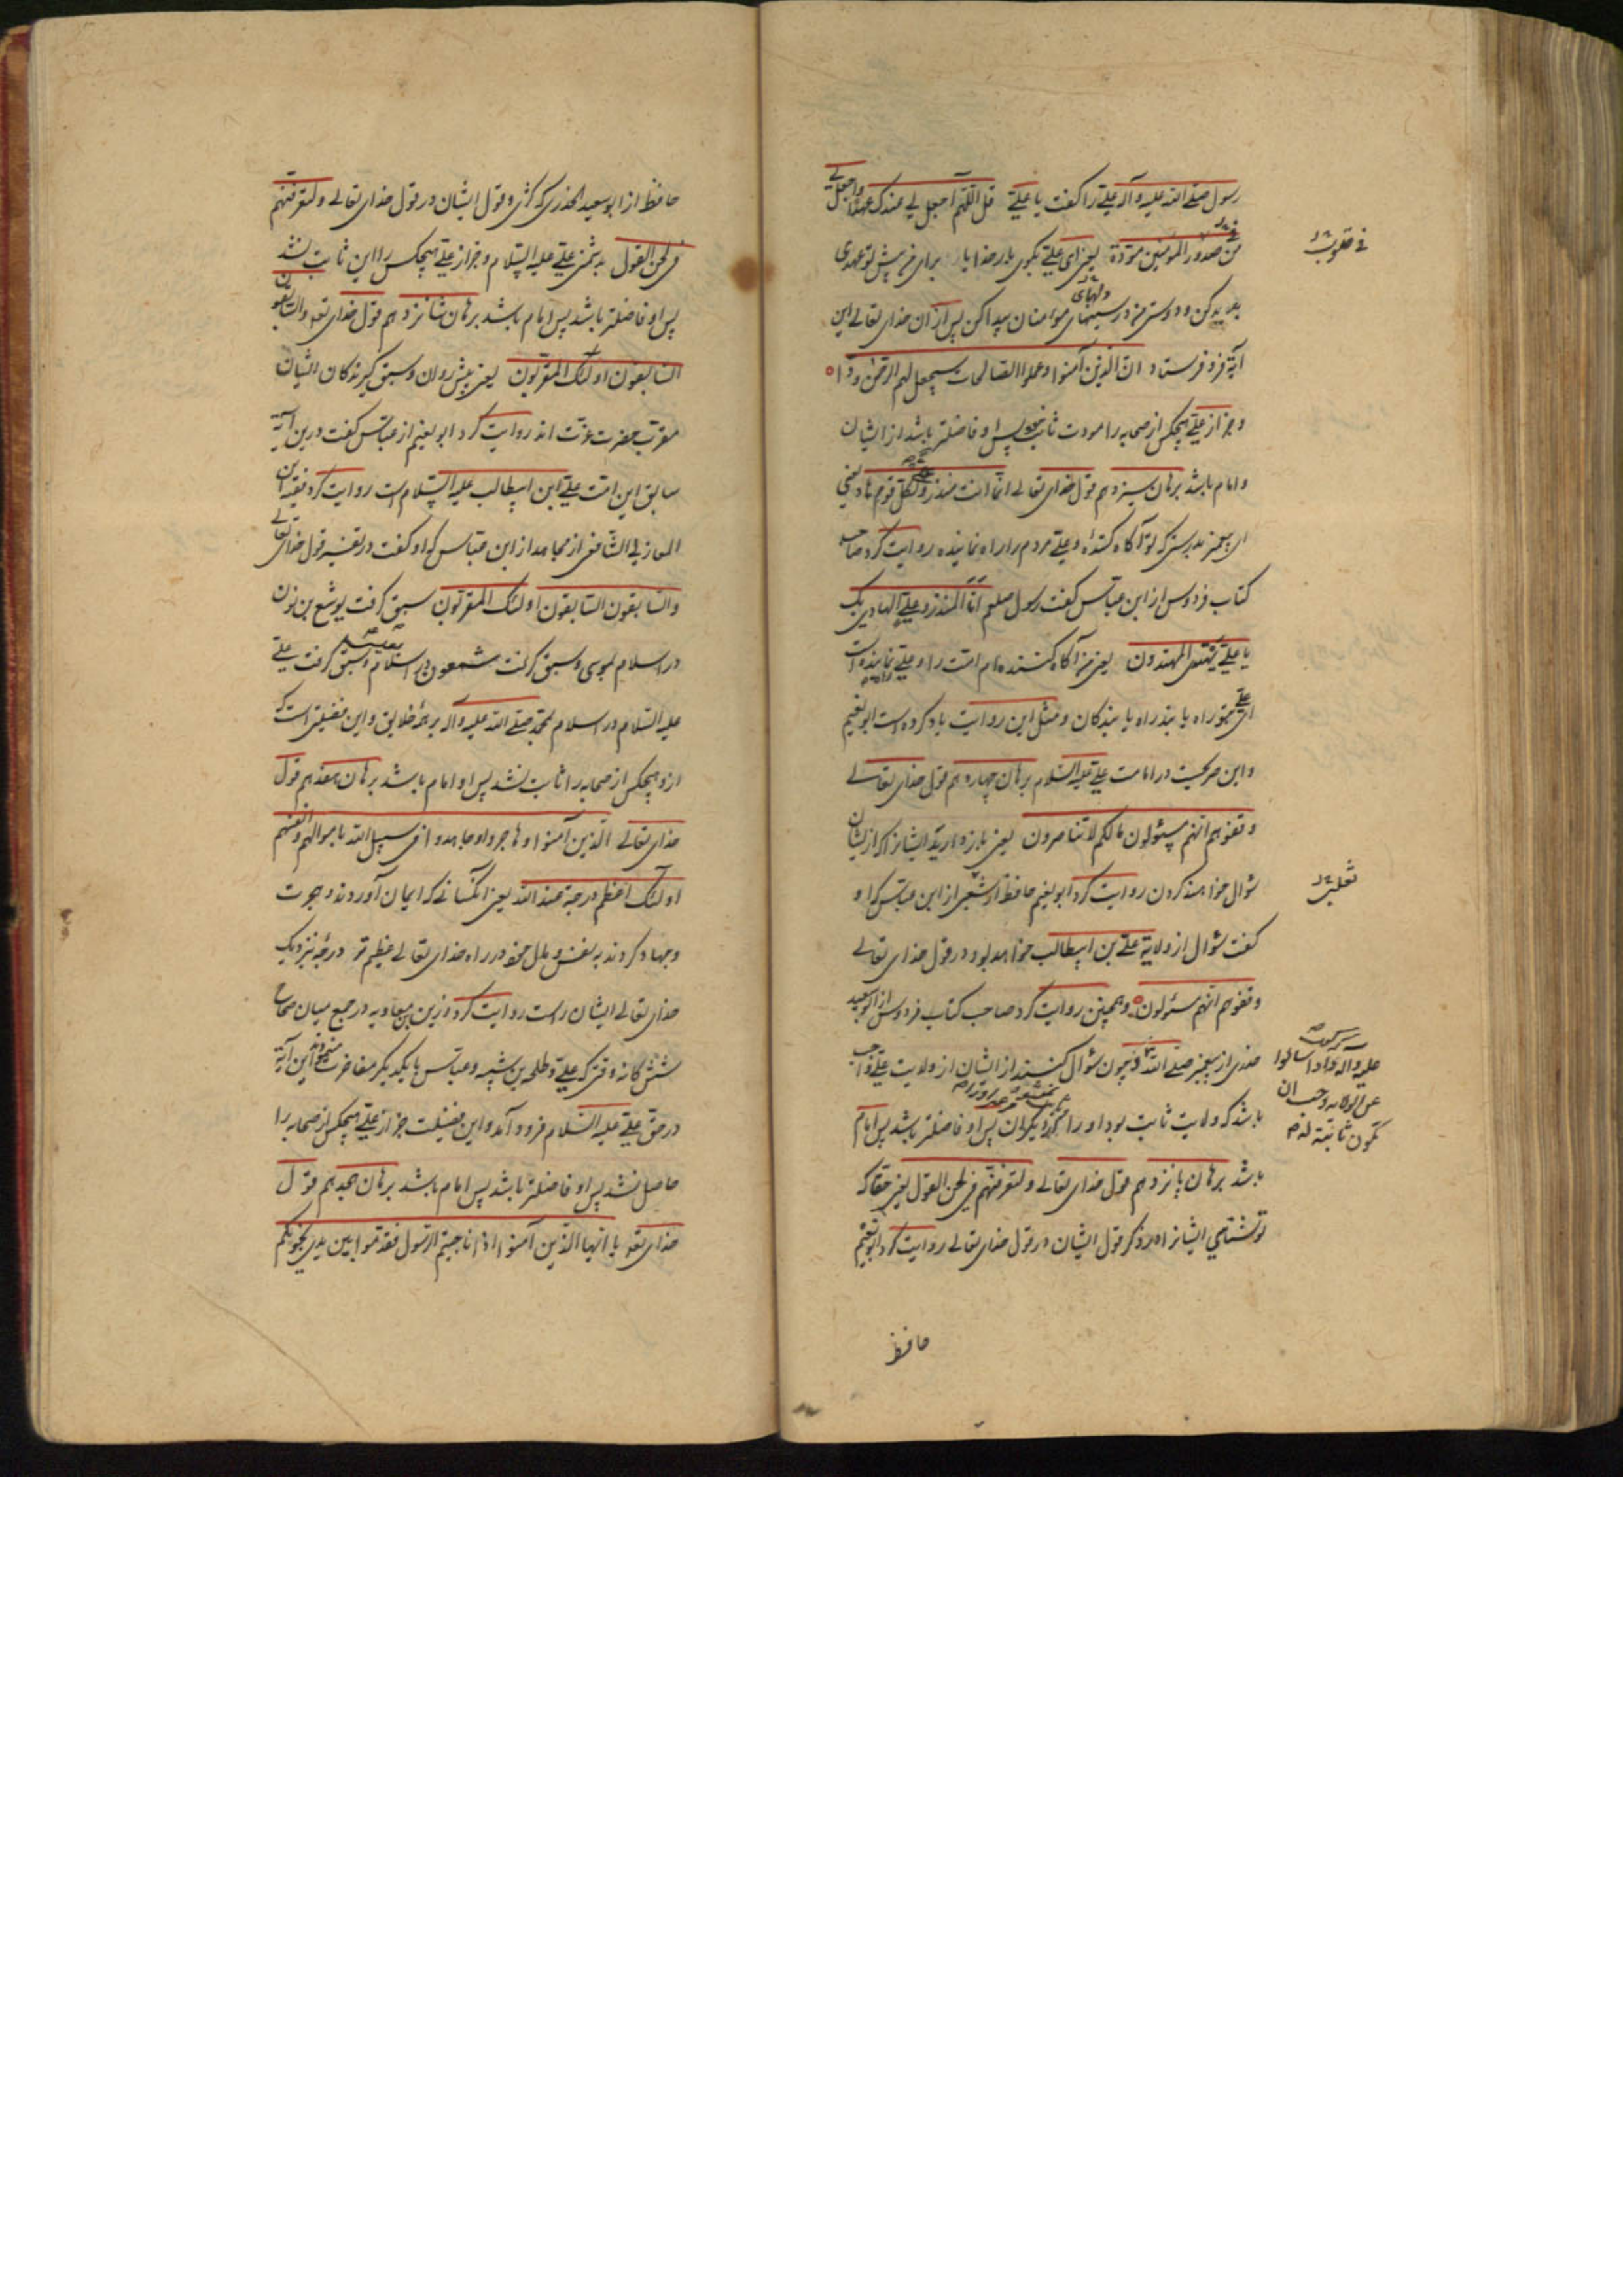 رسول صلی الله علیه وآله علی را گفت یا علی قل اللهم اجعل لی عندک عهدا واجعل لی
فی صدور المؤمنین مودة یعنی ای علی بگوی بار خدایا برای من پیش تو عهدی
پدید کن و دوستی من در سینهای مؤمنان پیدا کن پس از آن خدای تعالی این
دلهای
آیة فرو فرستاد ان الذین آمنوا وعملوا الصالحات سیجعل لهم الرحمن ودا
و جز از علی هیچکس از صحابه را مودت ثابت نبود پس او فاضلتر باشد از ایشان
و امام باشد برهان سیزدهم قول خدای تعالی انما انت منذر ولکل قوم هاد یعنی
ای پیغمبر بدرستی که تو آگاه کننده و علی مردم را راه نماینده روایت کرد صاحب
کتاب فردوس از ابن عباس گفت رسول صلعم انا المنذر وعلی الهادی بک
یا علی یهتدی المهتدون یعنی من آگاه کننده‌ام امت را و علی راه نماینده است
ای علی بتو راه یابند راه یابندگان و مثل این روایت یاد کرده است ابو نعیم
و این صریحست در امامت علی علیه السلام برهان چهاردهم قول خدای تعالی
وقفوهم انهم مسئولون مالکم لا تناصرون یعنی باز دارید ایشانرا که از ایشان
سؤال خواهند کردن روایت کرد ابو نعیم حافظ از شعبی از ابن عباس که او
گفت سؤال از ولایة علی بن ابیطالب خواهد بود در قول خدای تعالی
وقفوهم انهم مسئولون وهمچنین روایت کرد صاحب کتاب فردوس از ابو سعید
خدری از پیغمبر صلی الله و چون سؤال کنند از ایشان از ولایت علی واجب
باشد که ولایت ثابت بود او را دیگران پس او فاضلتر باشد پس امام
باشد برهان پانزدهم قول خدای تعالی ولتعرفنهم فی لحن القول یعنی حقا که
تو شناسی ایشانرا در قول ایشان در قول خدای تعالی روایت کرد ابو نعیم
حافظ
فی قلوب
ثعلبی
علیه وآله واذا سالوا
عن الولایه وجب ان
تکون ثابتة له
حافظ از ابو سعید الخدری که و قول ایشان در قول خدای تعالی ولتعرفنهم
فی لحن القول بدشمنی علی علیه السلام و جز از علی هیچکس را این ثابت نشد
پس او فاضلتر باشد پس امام باشد برهان شانزدهم قول خدای تعـ والسابقون
السابقون اولئک المقربون یعنی پیش روان و سبق گیرندگان ایشان
مقرب حضرت عزت اند روایت کرد ابو نعیم از عباس گفت درین آیة
سابق این امت علی ابن ابیطالب علیه السلام است روایت کرد فقیه ابن
المغازلی الشافعی از مجاهد از ابن عباس که او گفت در تفسیر قول خدای تعالی
والسابقون السابقون اولئک المقربون سبق گرفت یوشع بن نون
در اسلام بموسی و سبق گرفت شمعون در اسلام بعیسی و سبق گرفت علی
علیه السلام در اسلام بمحمد صلی الله علیه واله بر همه خلایق و این فضیلتی است که
از و هیچکس از صحابه را ثابت نشد پس او امام باشد برهان هفدهم قول
خدای تعالی الذین آمنوا وهاجروا وجاهدوا فی سبیل الله باموالهم وانفسهم
اولئک اعظم درجة عند الله یعنی آنکسانی که ایمان آوردند و هجرت
و جهاد کردند به نفس و مال خود در راه خدای تعالی عظیم تر درجه نزدیک
خدای تعالی ایشان راست روایت کرد رزین بن معاویه در جمع میان صحاح
شش گانه وقتی که علی و طلحه بن شیبه و عباس با یکدیگر مفاخرت این آیة
در حق علی علیه السلام فرود آمد و این فضیلت جز از علی هیچکس از صحابه را
حاصل نشد پس او فاضلتر باشد پس امام باشد برهان هجدهم قول
خدای تعـ یا ایها الذین آمنوا اذا ناجیتم الرسول فقدموا بین یدی نجویکم